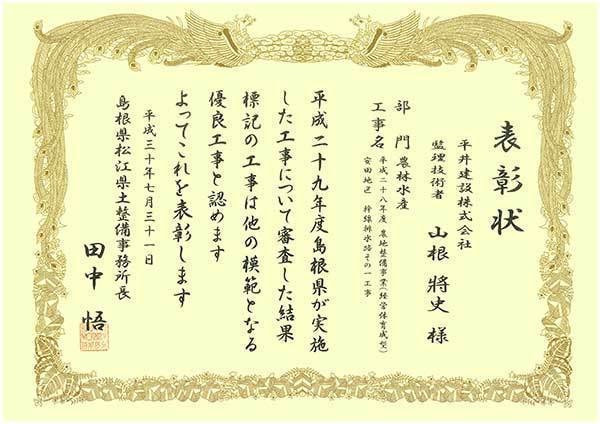 表彰状
平井建設株式会社
監理技術者
山根 將史 様
部門 農林水産
工事名 平成二十八年度 農地整備事業(経営体育成型)
安田地区 幹線排水路その一工事
平成二十九年度島根県が実施
した工事について審査した結果
標記の工事は他の模範となる
優良工事と認めます
よってこれを表彰します
平成三十年七月三十一日
島根県松江県土整備事務所長
田中 悟